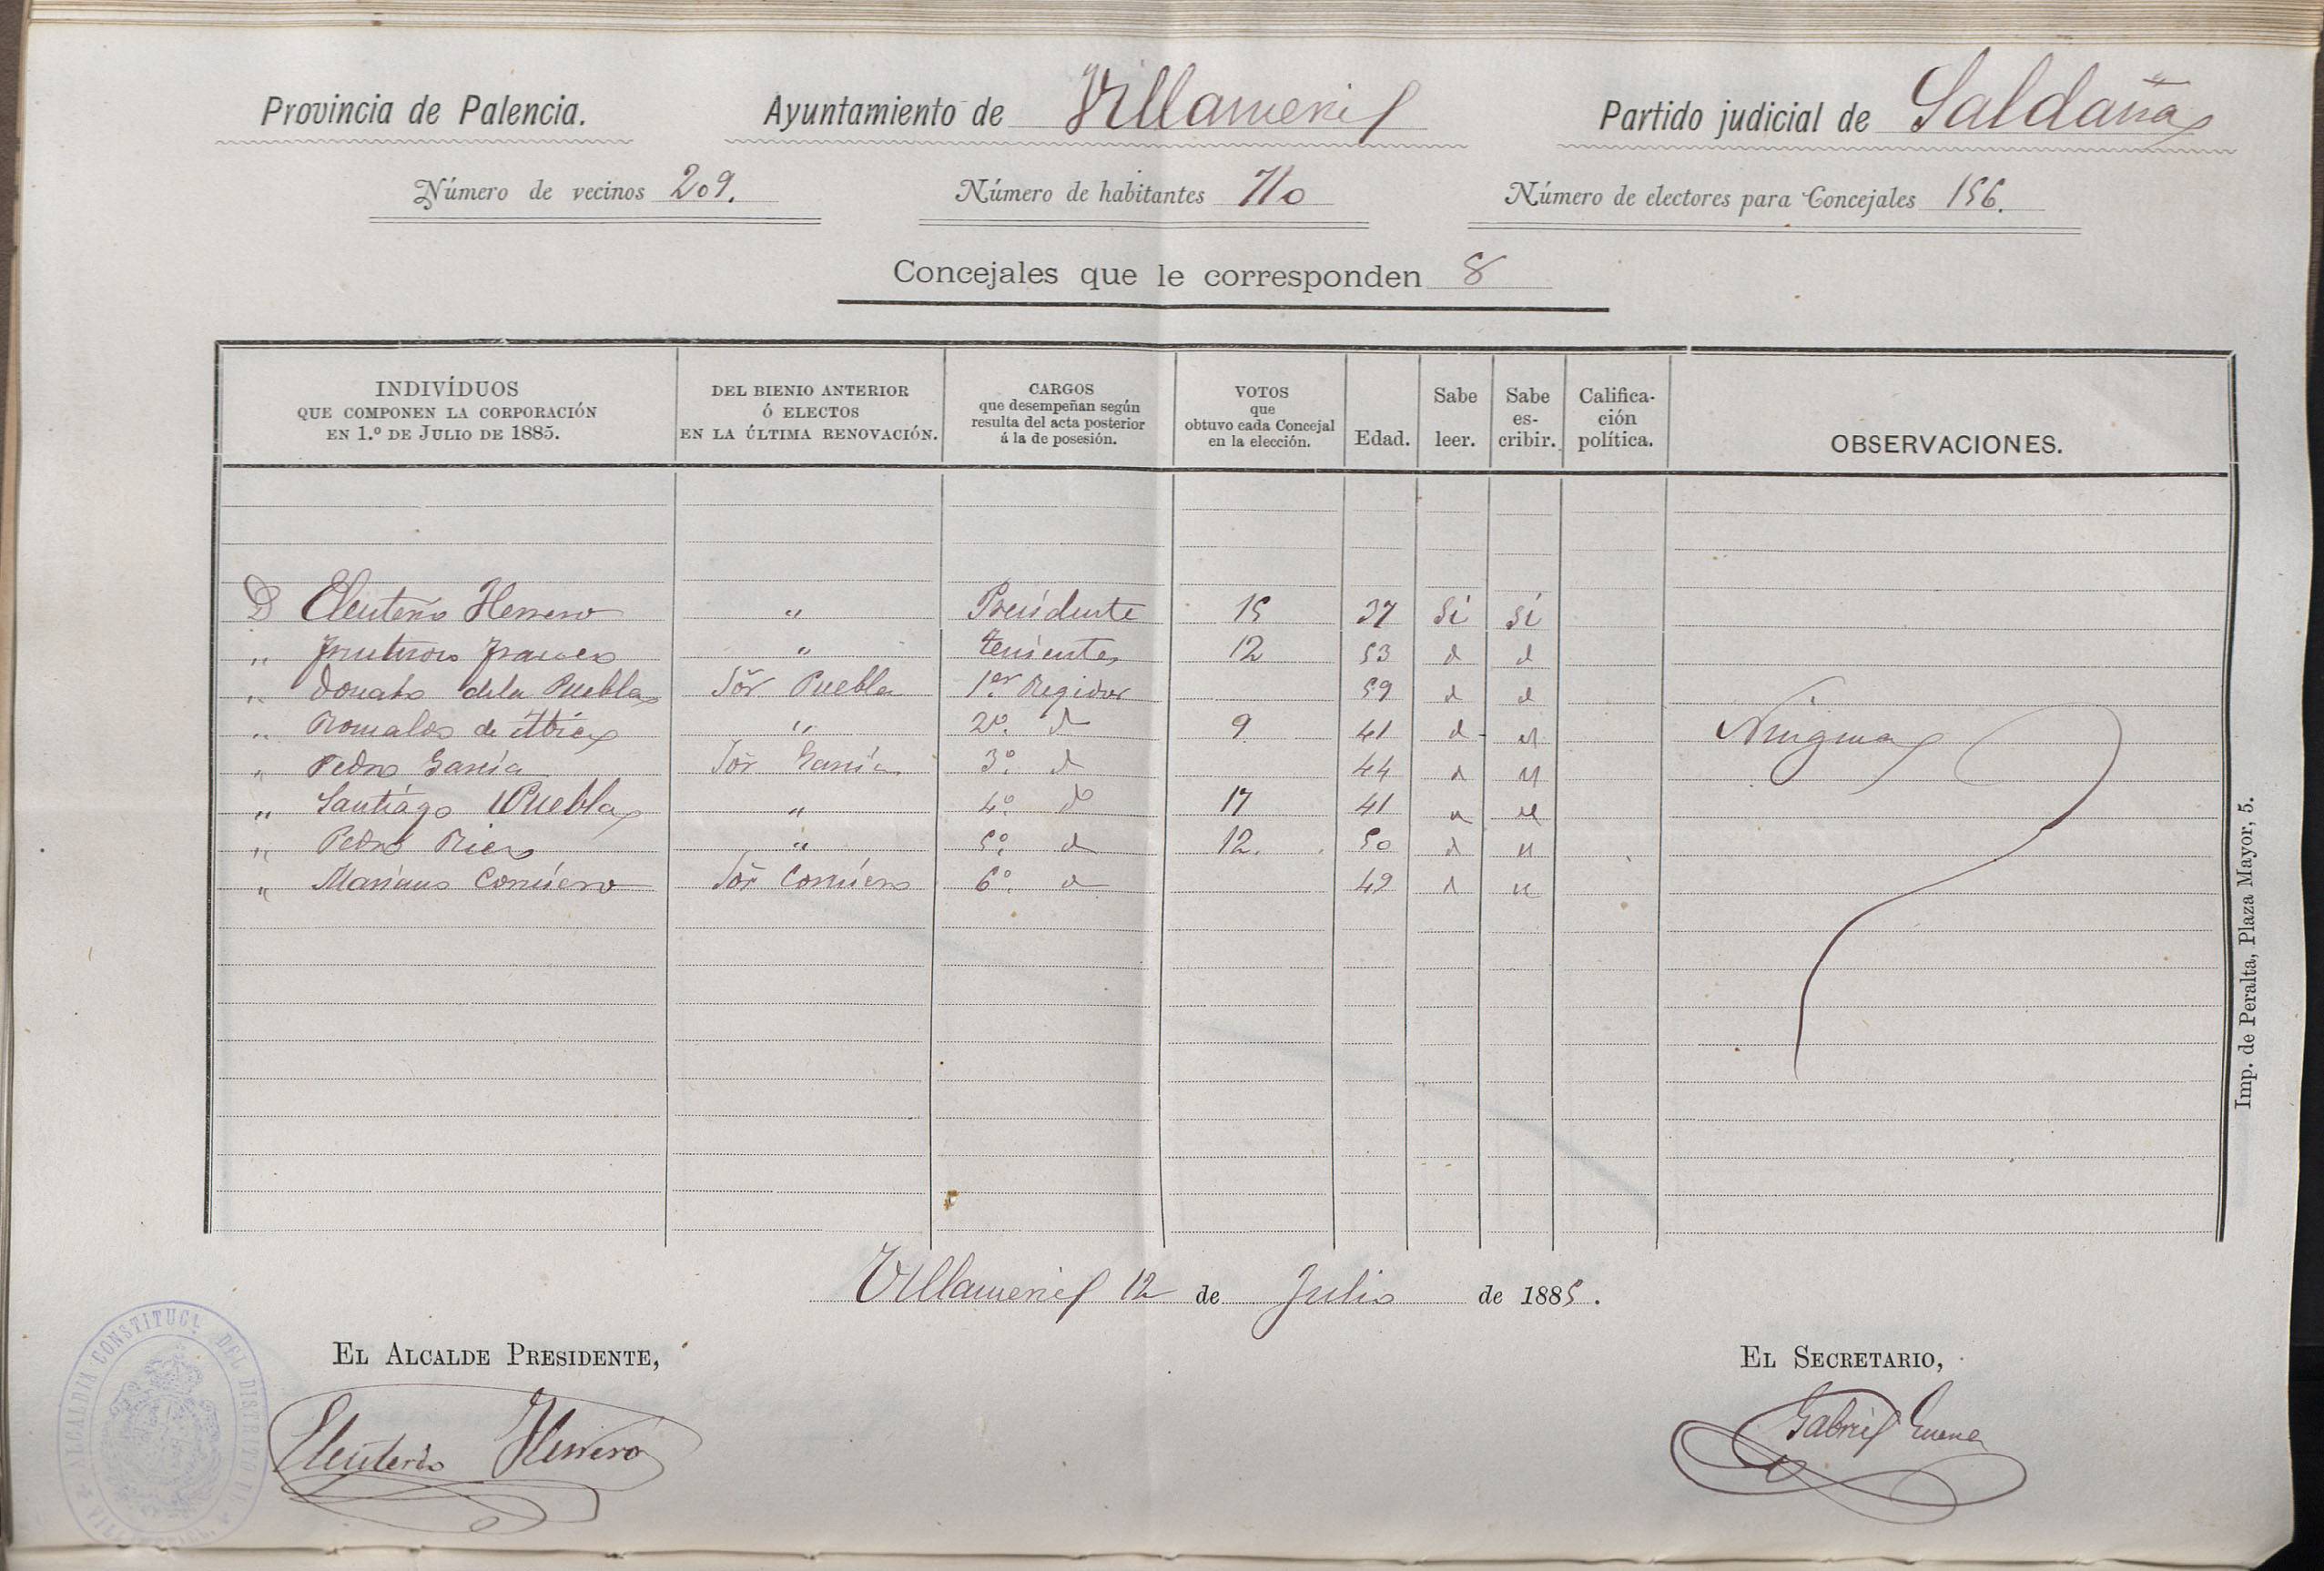 Provincia de Palencia. Ayuntamiento de Villameriel Partido judicial de Saldaña
Número de vecinos 209. Número de habitantes 710 Número de electores para Concejales 156.
Concejales que le corresponden 8
INDIVÍDUOS QUE COMPONEN LA CORPORACIÓN EN 1.º DE JULIO DE 1885.
DEL BIENIO ANTERIOR Ó ELECTOS EN LA ÚLTIMA RENOVACIÓN.
CARGOS que desempeñan según resulta del acta posterior á la de posesión.
VOTOS que obtuvo cada Concejal en la elección.
Edad.
Sabe leer.
Sabe es-cribir.
Califica-ción política.
OBSERVACIONES.
D Eleuterio Herrero " Presidente 15 37 Sí sí
" " teniente 12 53 d d
" Donato de la Puebla Sor Puebla 1er Regidor 59 d d
" de " 2º. d 9 41 d "
" Pedro Garcia Sor Garcia 3º. d 44 d "
" Santiágo Puebla " 4º dº 17 41 " "
" Pedro " 5º. d 12. 50 d "
" Mariano Sor 6º. d 42 d "
Ninguna
Villameriel 12 de Julio de 1885.
EL ALCALDE PRESIDENTE, EL SECRETARIO,
Eleuterio Herrero Gabriel
ALCALDIA CONSTITUCL. DEL DISTRITO DE
Imp. de Peralta, Plaza Mayor, 5.